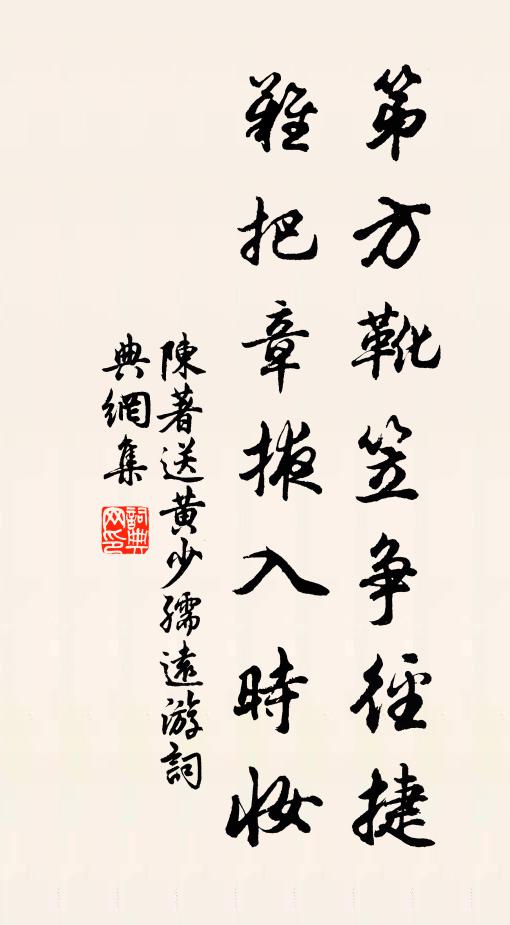 第方靴笠争徑捷
難把章掖入時妝
陳著送黄少孺遠游詞
典網集
詞典网印